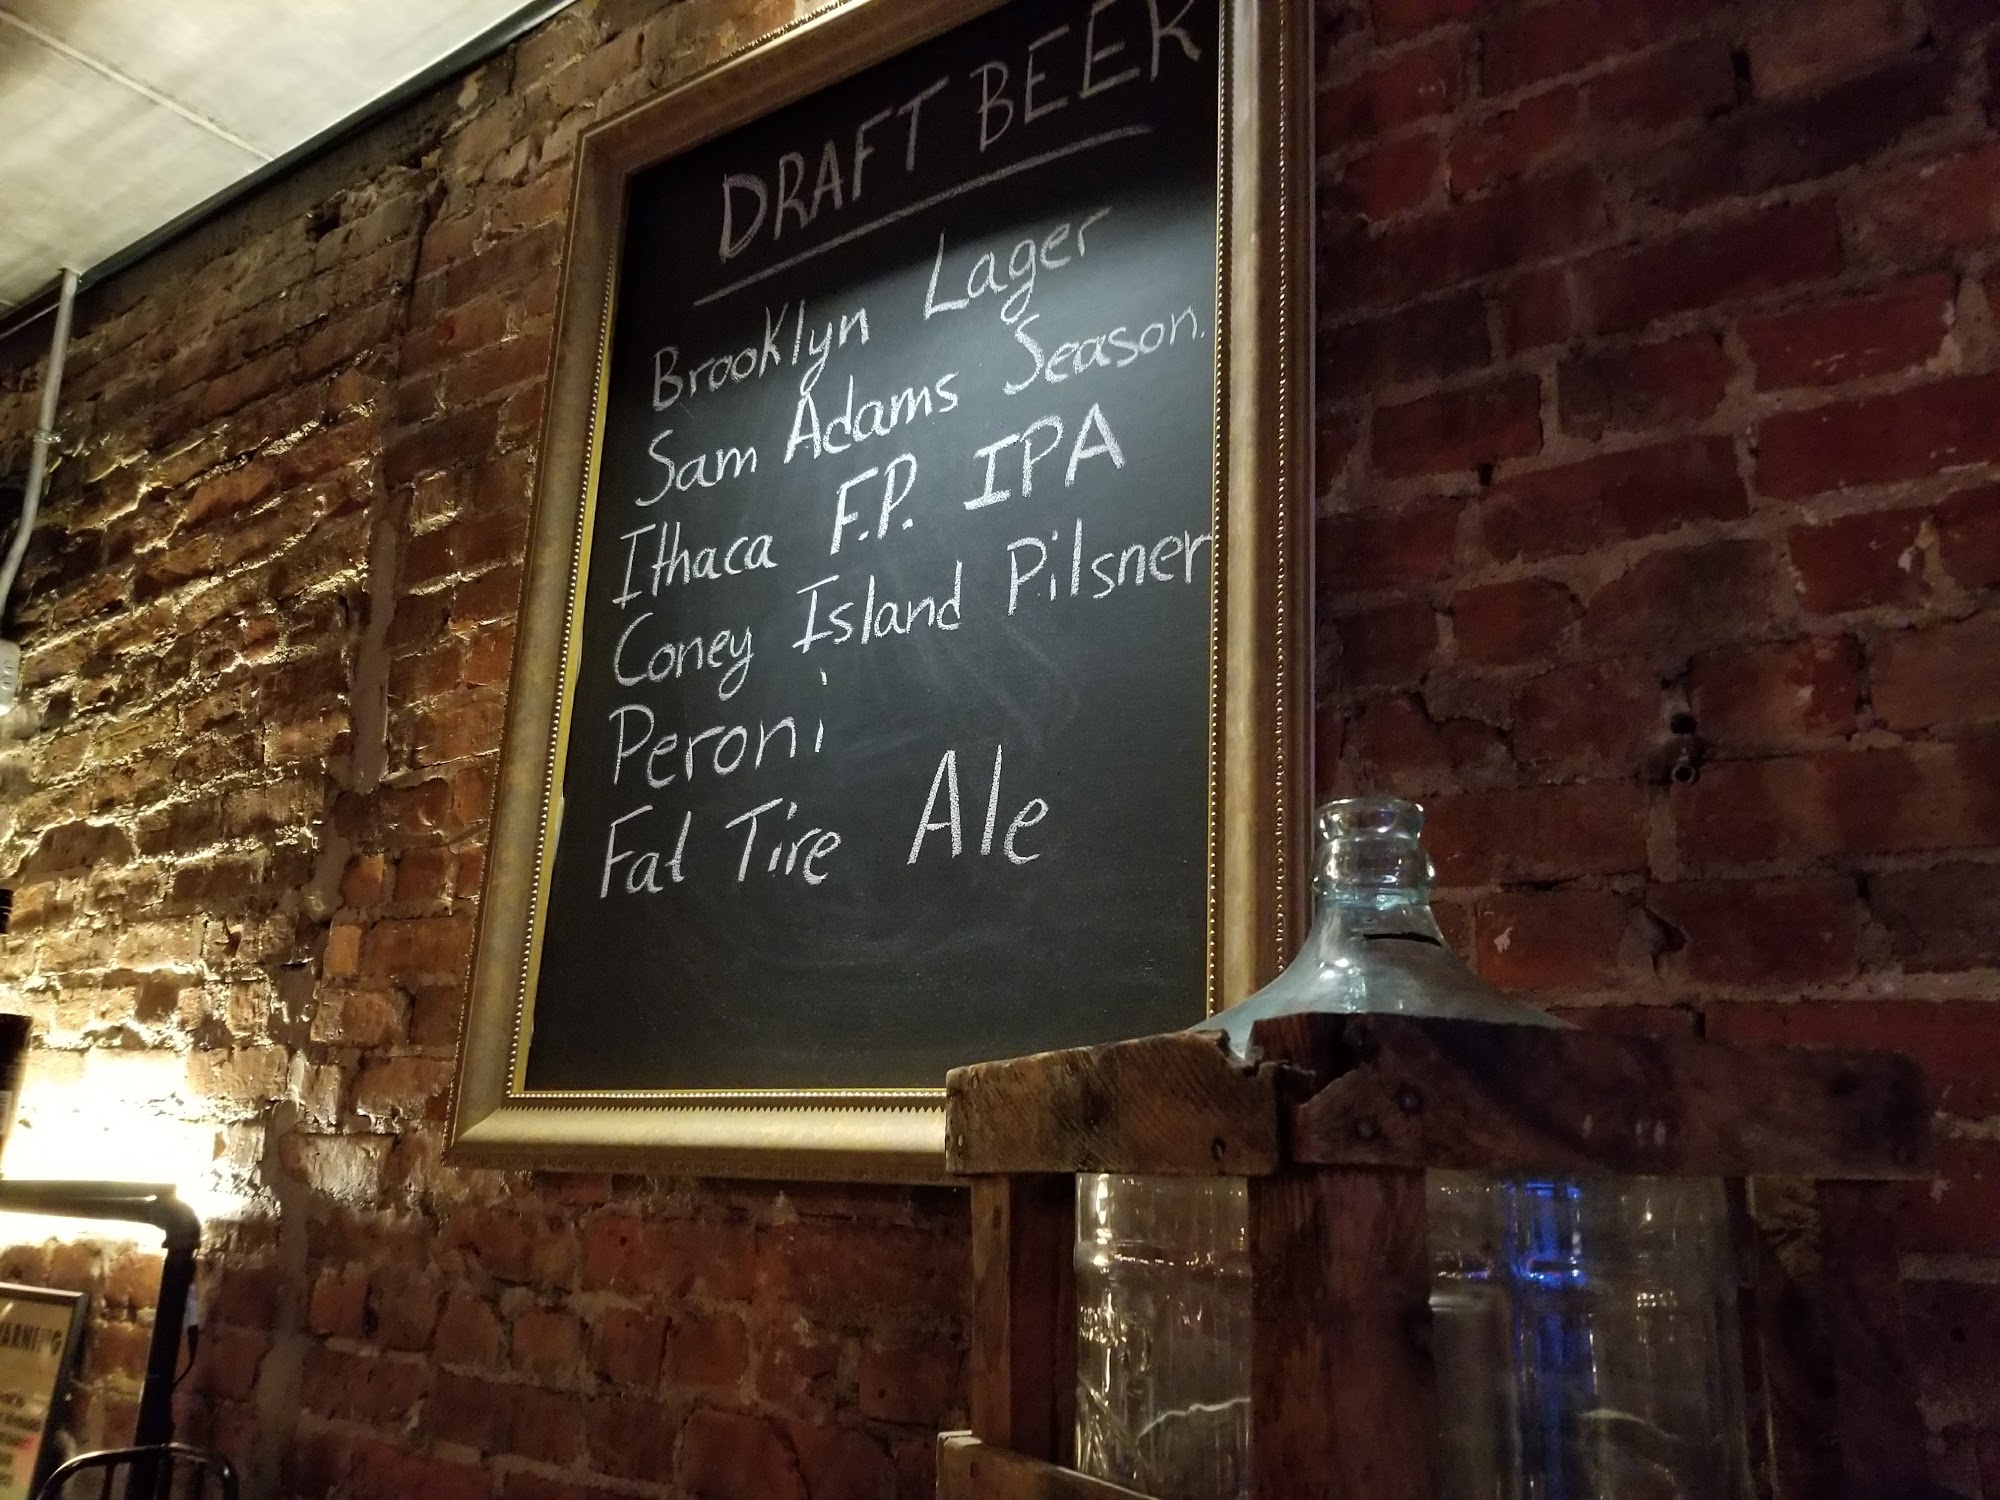 DRAFT BEER
Brooklyn Lager
Sam Adams Season.
Ithaca F.P. IPA
Coney Island Pilsner
Peroni
Fat Tire Ale
WARNING